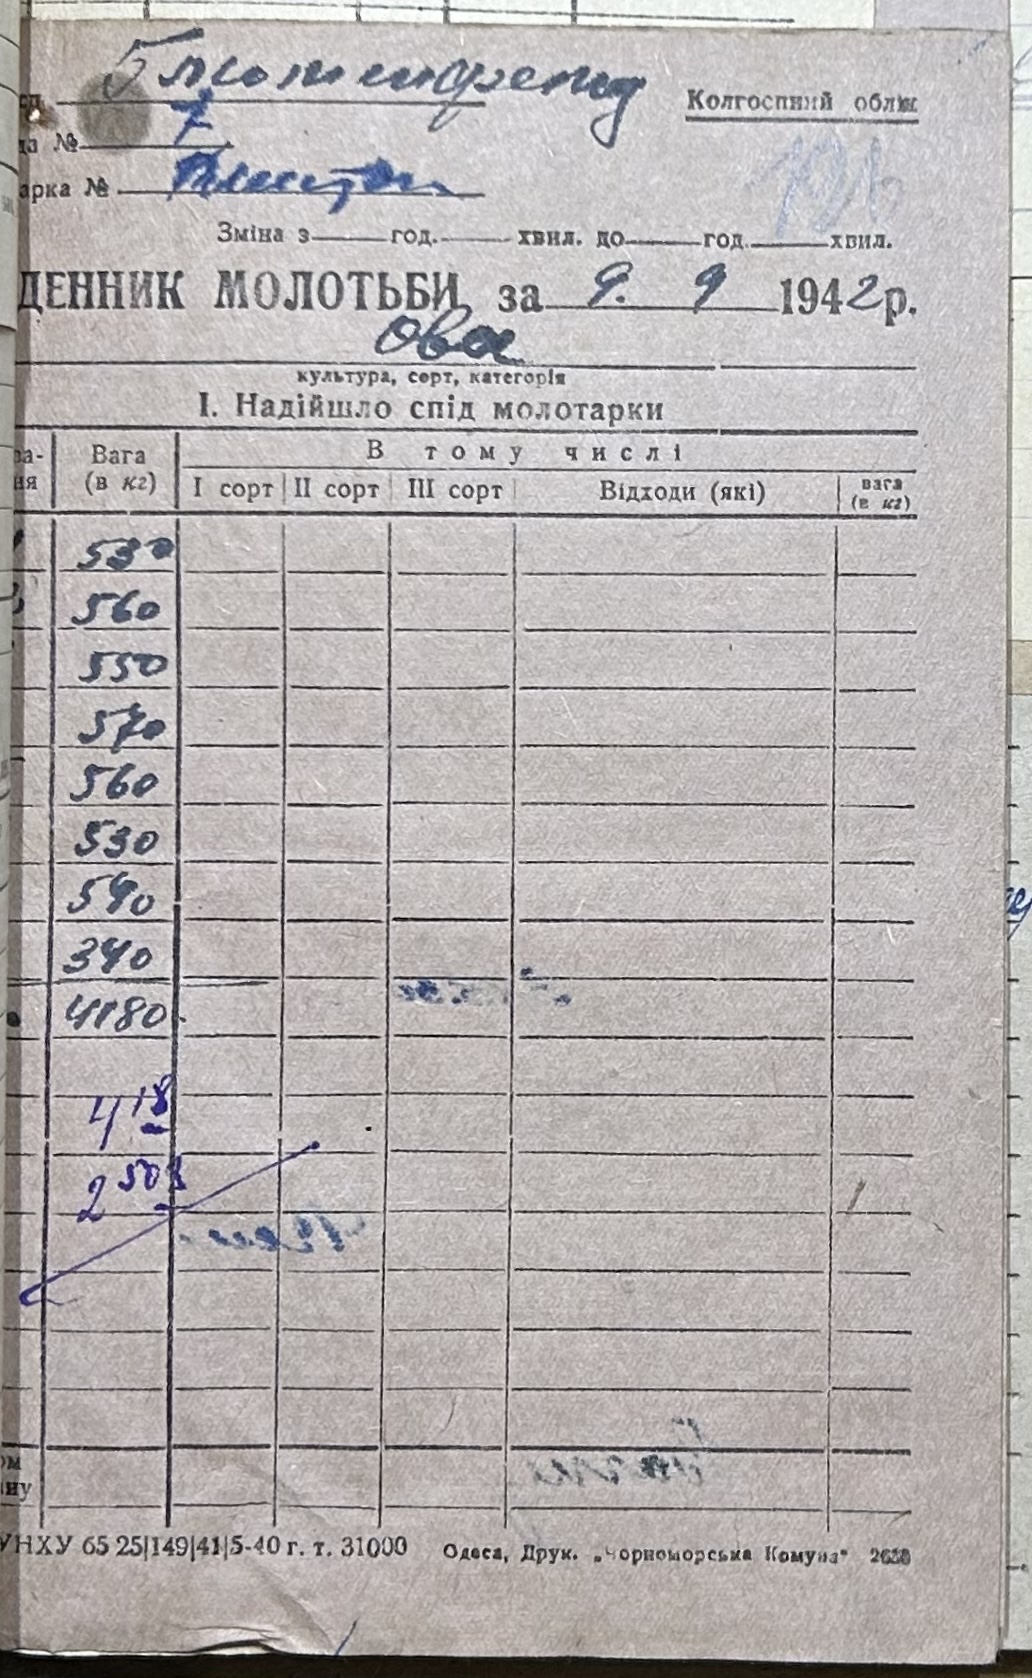 Колгоспний облік
7
да №
арка №
Зміна з год. хвил. до год. хвил.
ДЕННИК МОЛОТЬБИ за 9. 9 1942р.
культура, сорт, категорія
I. Надійшло спід молотарки
ва-
ня
Вага (в кг)
В тому числі
I сорт II сорт III сорт Відходи (які) вага (в кг)
530
560
550
570
560
530
540
340
4180
4 18
2 508
ом
ну
УНХУ 65 25|149|41|5-40 г. т. 31000 Одеса, Друк. „Чорноморська Комуна“